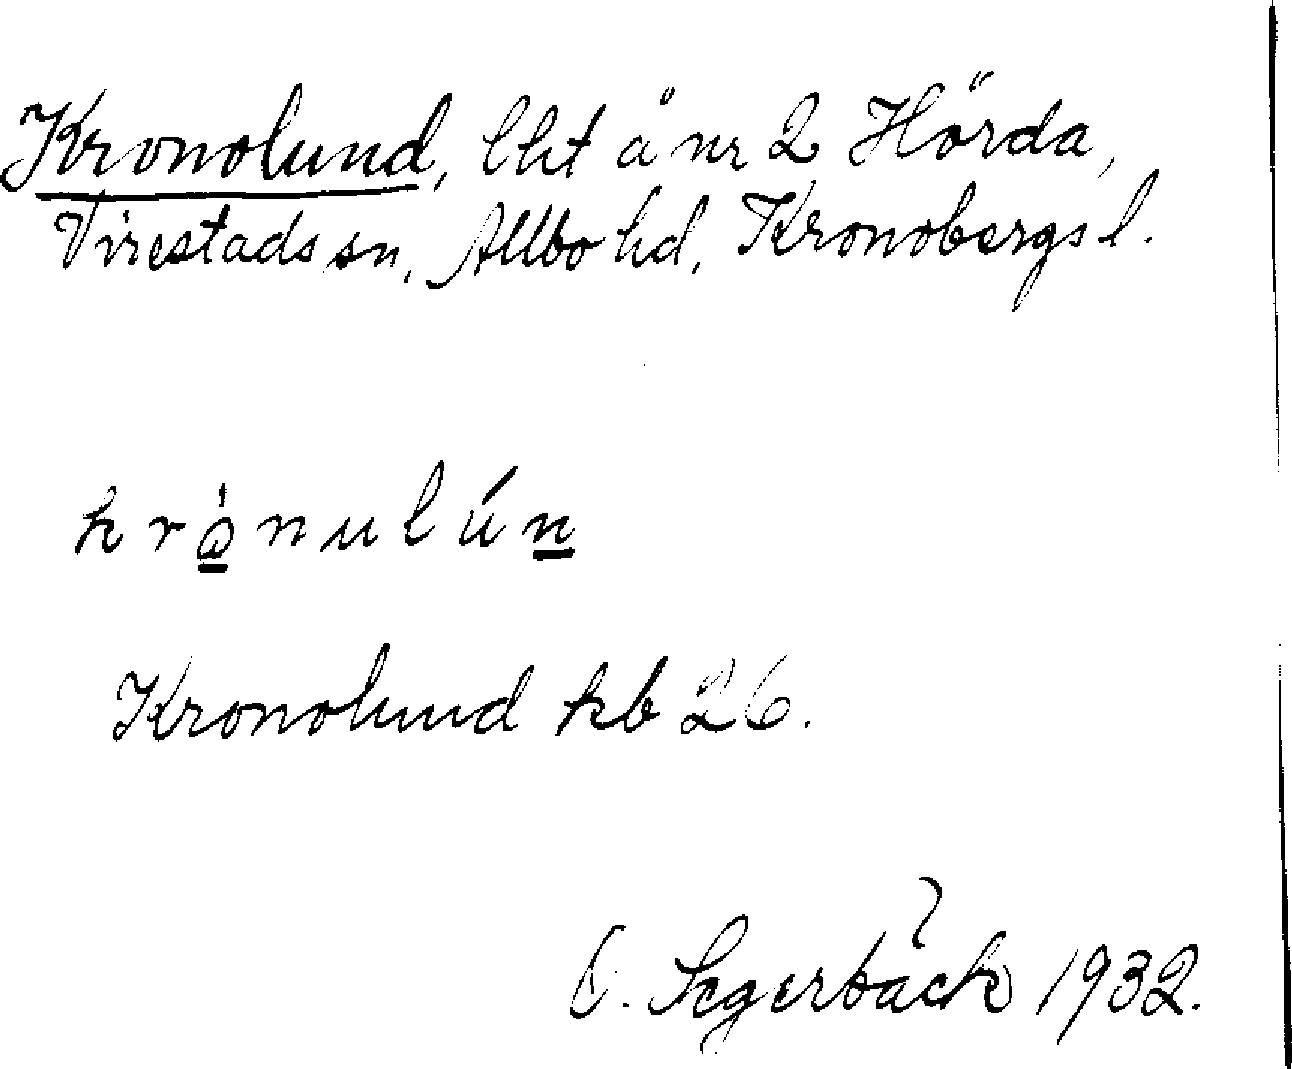 Kronolund, lht å nr 2 Hörda,
Virestads sn, Allbo hd, Kronobergs l.
krònulún
Kronolund kb 26.
O. Segerbäck 1932.